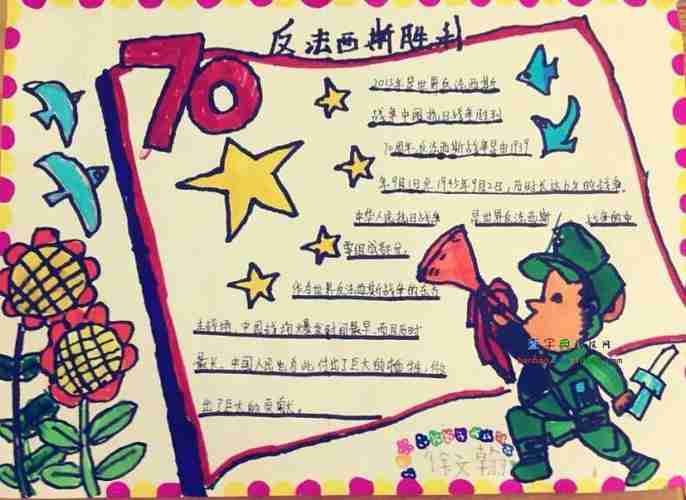 反法西斯胜利
70
2015年是世界反法西斯
战争中国抗日战争胜利
70周年.反法西斯战争是由1939
年9月1日至1945年9月2日,历时长达
中华人民抗日战争 是世界反法西斯 战争的重
要组成部分。
作为世界反法西斯战争的东方
主战场,中国战场爆发时间最早,而且历时
最长.中国人民也为此付出了巨大的牺牲,做
出了巨大的贡献。
徐文翰